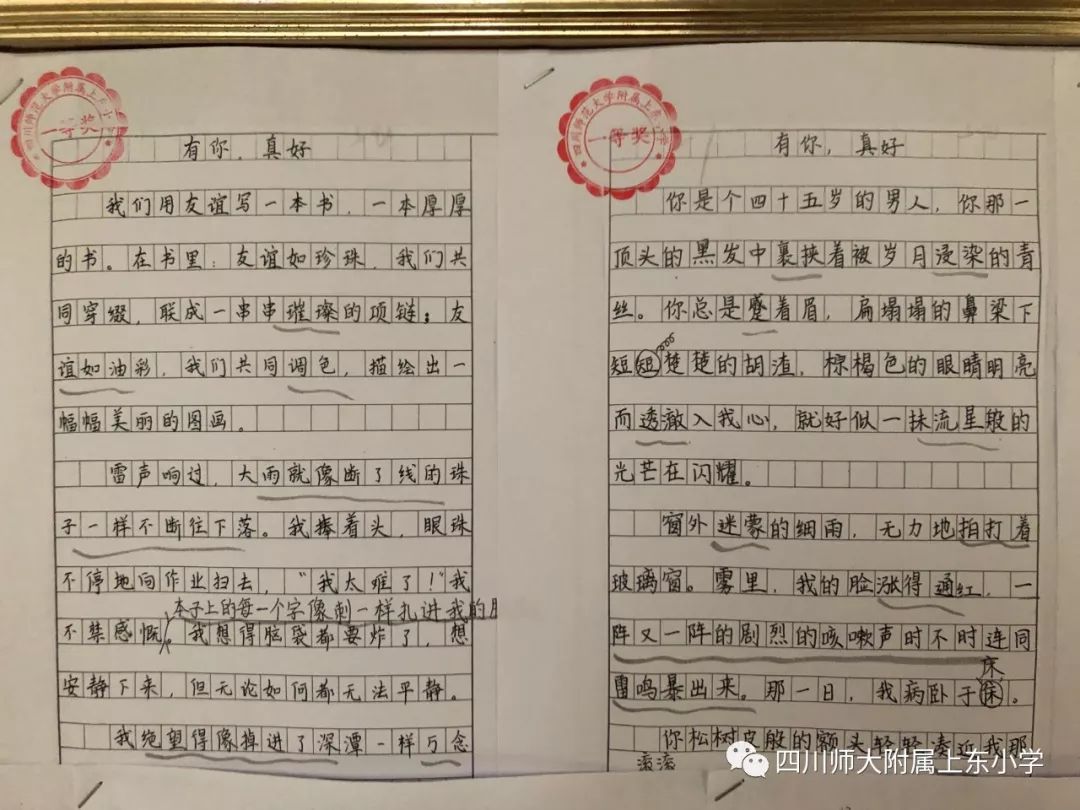 四川师范大学附属上东小学
一等奖
有你，真好
我们用友谊写一本书，一本厚厚
的书。在书里：友谊如珍珠，我们共
同穿缀，联成一串串璀璨的项链；友
谊如油彩，我们共同调色，描绘出一
幅幅美丽的图画。
雷声响过，大雨就像断了线的珠
子一样不断往下落。我捧着头，眼珠
不停地向作业扫去，“我太难了！”我
本子上的每一个字像刺一样扎进我的
不禁感慨。我想得脑袋都要炸了，想
安静下来，但无论如何都无法平静。
我绝望得像掉进了深潭一样万念
四川师范大学附属上东小学
一等奖
有你，真好
你是个四十五岁的男人，你那一
顶头的黑发中裹挟着被岁月浸染的青
丝。你总是蹙着眉，扁塌塌的鼻梁下
短短楚楚的胡渣，棕褐色的眼睛明亮
而透澈入我心，就好似一抹流星般的
光芒在闪耀。
窗外迷蒙的细雨，无力地拍打着
玻璃窗。雾里，我的脸涨得通红，一
阵又一阵的剧烈的咳嗽声时不时连同
床
雷鸣暴出来。那一日，我病卧于床。
你松树皮般的额头轻轻凑近我那
滚滚
四川师大附属上东小学